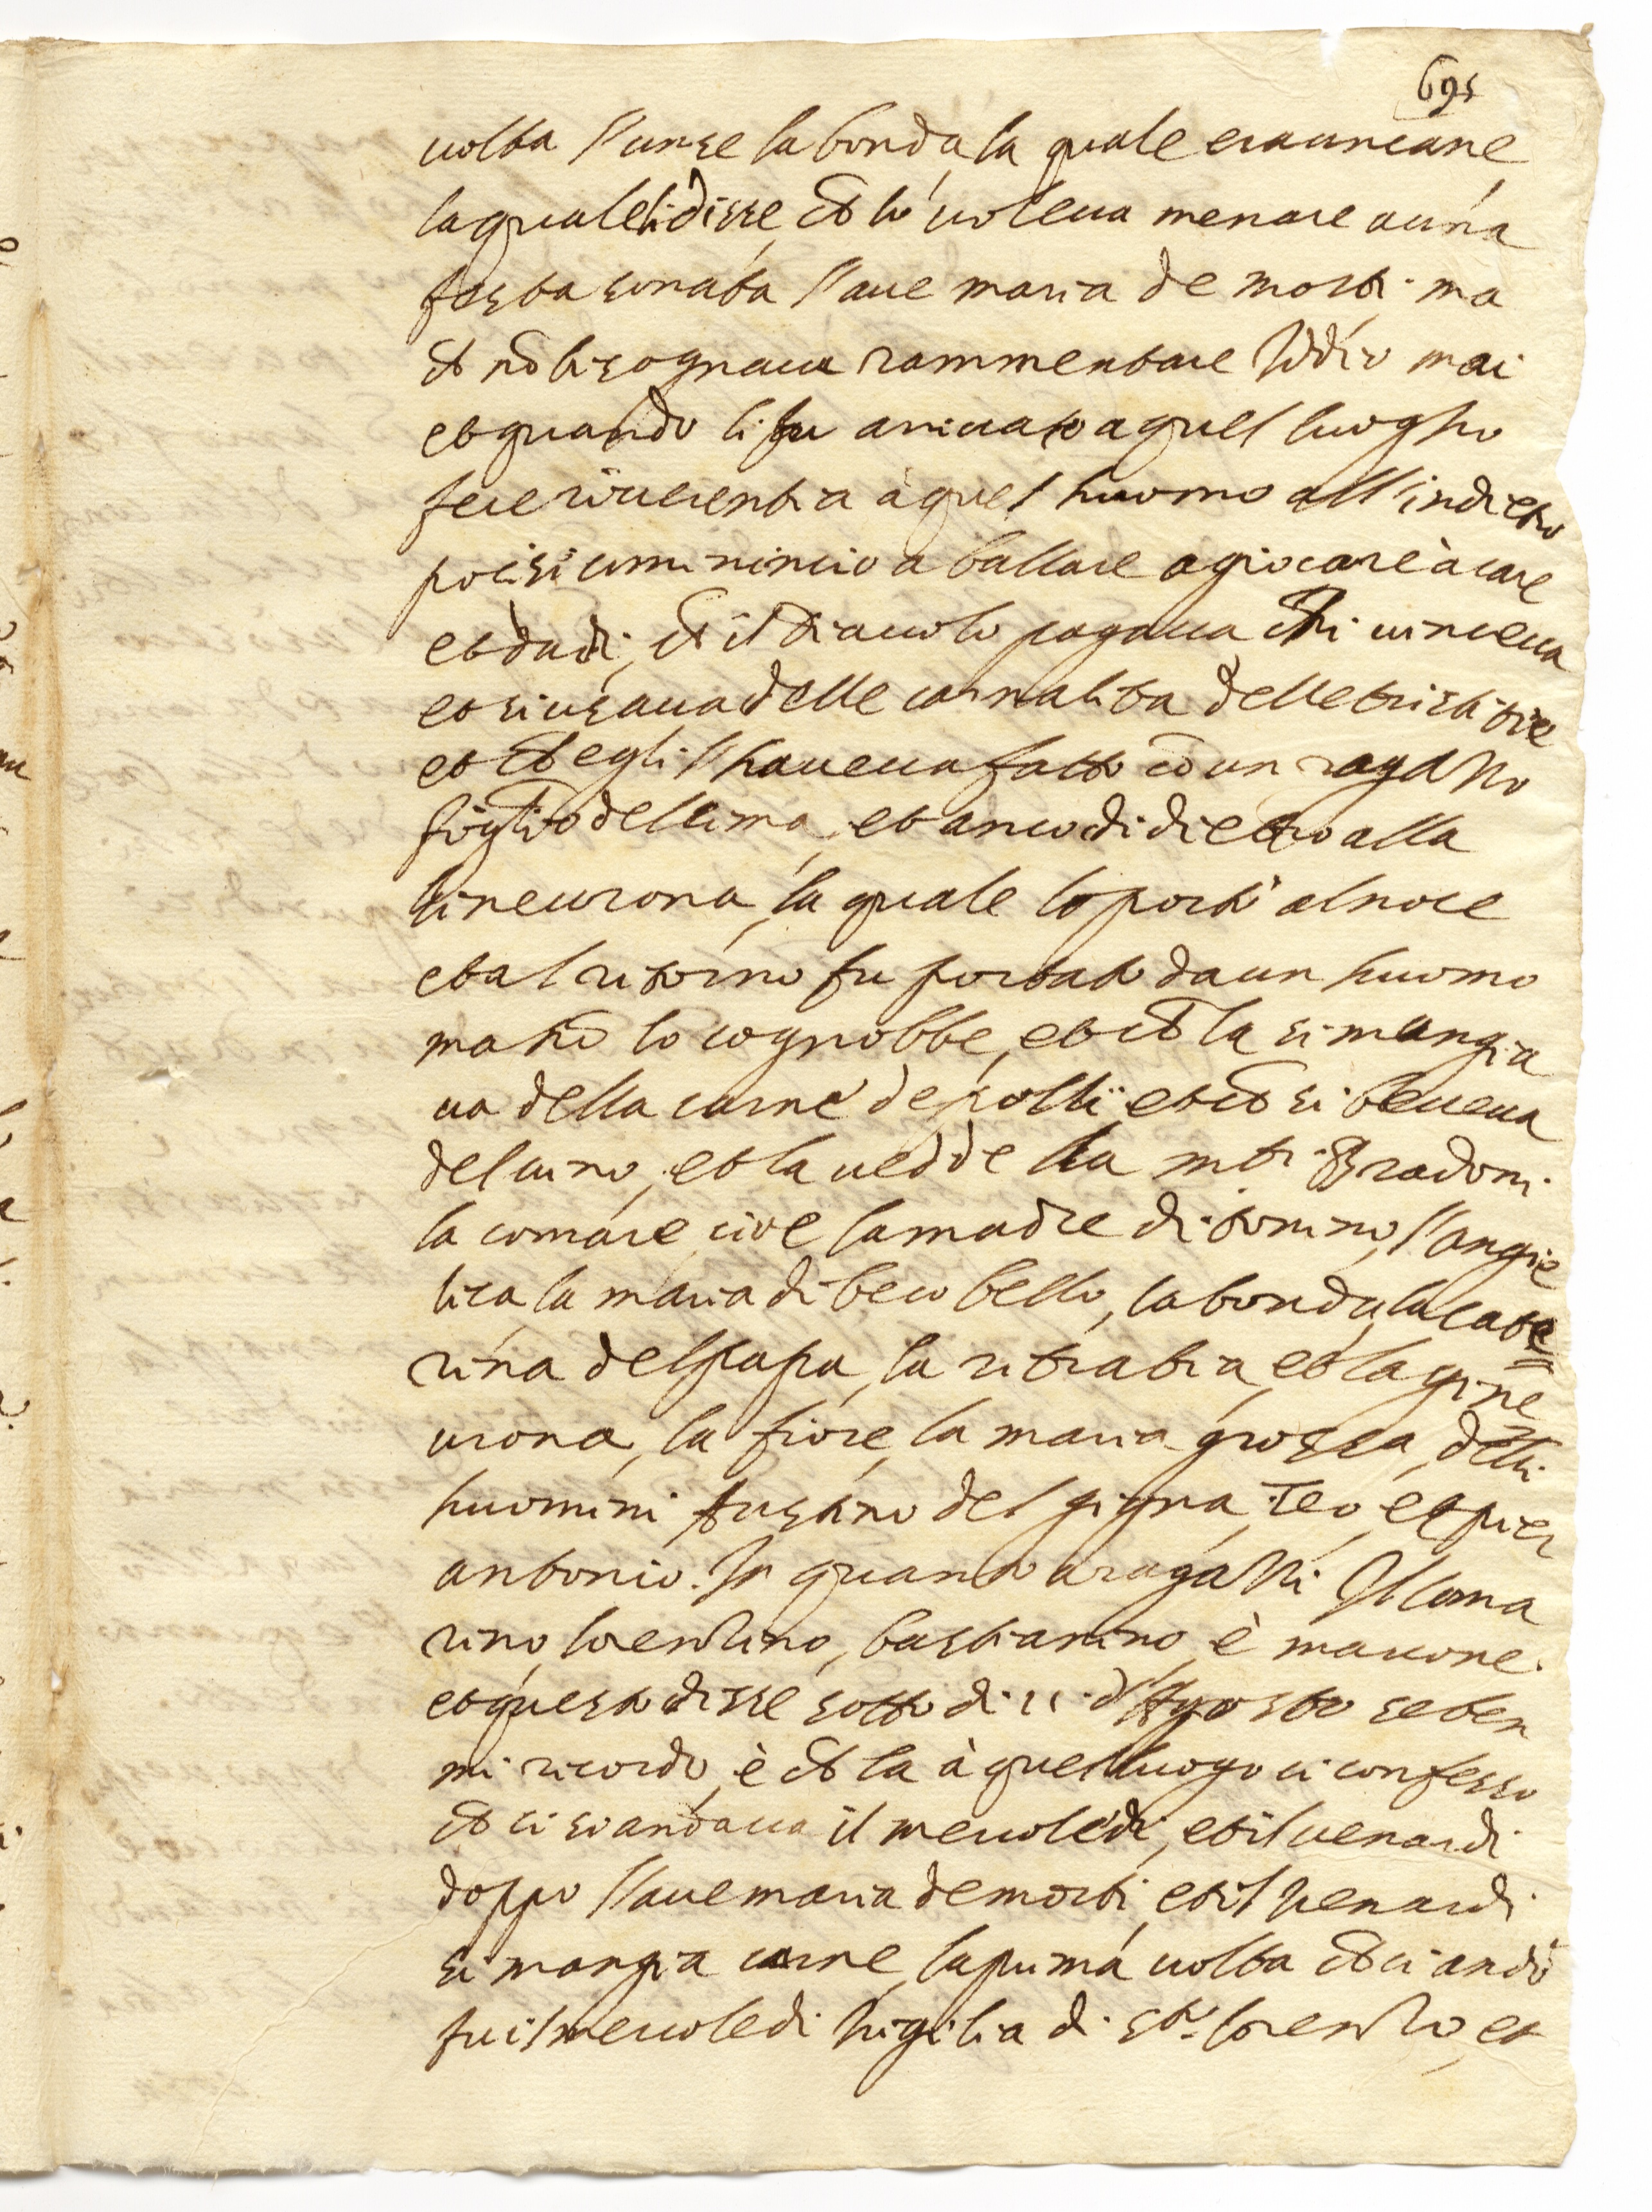 695
uolta l'unse la bonda, la quale era un cane
la quale li disse, ch lo uoleua menare a una
festa sonata l'aue maria de morti. ma
ch nõ bisognaua rammentare Iddio mai
et quando li fu arriuato a quel luogho
fece riuerentia à quel huomo all'indietro
poi si comminciò a ballare a giocare à care
et dadi, ch il diauolo pagaua chi uinceua
et si usaua delle carnalita delle tristitie
et ch egli l'haueua fatto cõ un ragazzo
figlio della ima, et anco di dietro alla
lineurona, la quale lo portò al noce
et al ritorno fu portato da un huomo
ma nõ lo cognobbe, et ch la si mangia
ua della carne de polli et ch si beueua
del uino, et la uedde la
la comare, cioe la madre di tonino, l'angie
lica, la maria di beco bello, la bonda, la cate=
rina del papa, la ritratia, et la gine
urona, la fiore, la maria grossa, delli
huomini fustino del pigna, Teo, et pier
antonio. In quanto a ragazzi Il coma
rino, lorenzino, bastianino, è maccone.
et questo disse sotto di 11 d'Agosto se ben
mi ricordo, è ch la à quel luogo ci confesso
ch ci si andaua il mercoledi, et il uenardi
doppo l'aue maria de morti, et il uenardi
si mangia carne, la prima uolta ch ci andò
fu il mercoledi uigilia di Sto. lorenzo, et